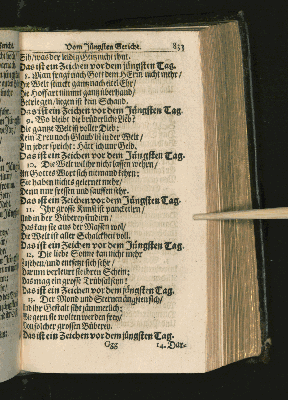 Vom Jüngsten Gericht. 833
Sih / was der leidig Geitz nicht thut.
Das ist ein Zeichen vor dem jüngsten Tag.
8. Man fragt nach Gott dem HErrn nicht mehr /
Die Welt stinckt gantz nach eitel Ehr /
Die Hoffart nimmt gantz überhand /
Betriegen / liegen ist kein Schand.
Das ist ein Zeichen vor dem Jüngsten Tag.
9. Wo bleibt die brüderliche Lieb?
Die gantze Welt ist voller Dieb;
Kein Treu noch Glaub ist in der Welt /
Ein jeder spricht: Hätt ich nur Geld.
Das ist ein Zeichen vor dem Jüngsten Tag.
10. Die Welt will ihr nicht lassen wehren /
An Gottes Wort sich niemand kehren;
Sie haben nichts gelernet mehr /
Denn nur fressen und sauffen sehr.
Das ist ein Zeichen vor dem Jüngsten Tag.
11. Ihr grosse Kunst ist pancketiren /
Und in der Büberey studirn /
Das kan sie aus der Massen wol /
Die Welt ist aller Schalckheit voll.
Das ist ein Zeichen vor dem Jüngsten Tag.
12. Die liebe Sonne kan nicht mehr
zusehen / und entsetzt sich sehr /
Darum verleurt sie ihren Schein;
Das mag ein grosse Trübsal seyn!
Das ist ein Zeichen vor dem jüngsten Tag.
13. Der Mond und Sternen ängsten sich /
Und ihr Gestalt siht jämmerlich;
Wie gern sie wolten werden frey /
Von solcher grossen Büberey.
Das ist ein Zeichen vor dem jüngsten Tag.
Ggg 14. Dar-